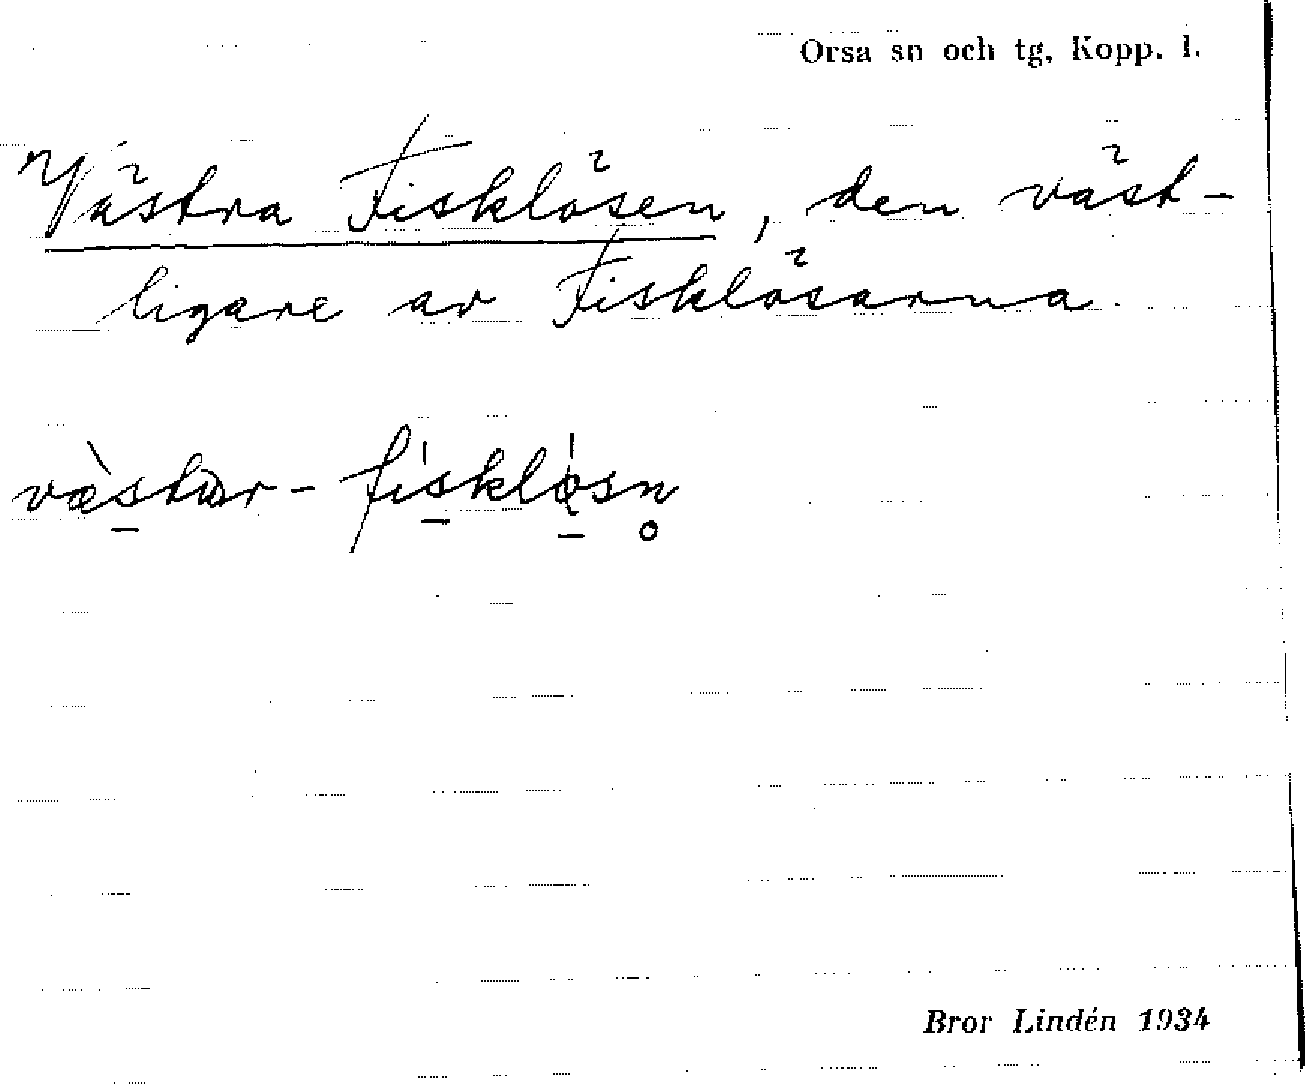 Orsa sn och tg, Kopp. l.
Västra Fisklösen, den väst-
ligare av Fisklösarna.
Bror Lindén 1934